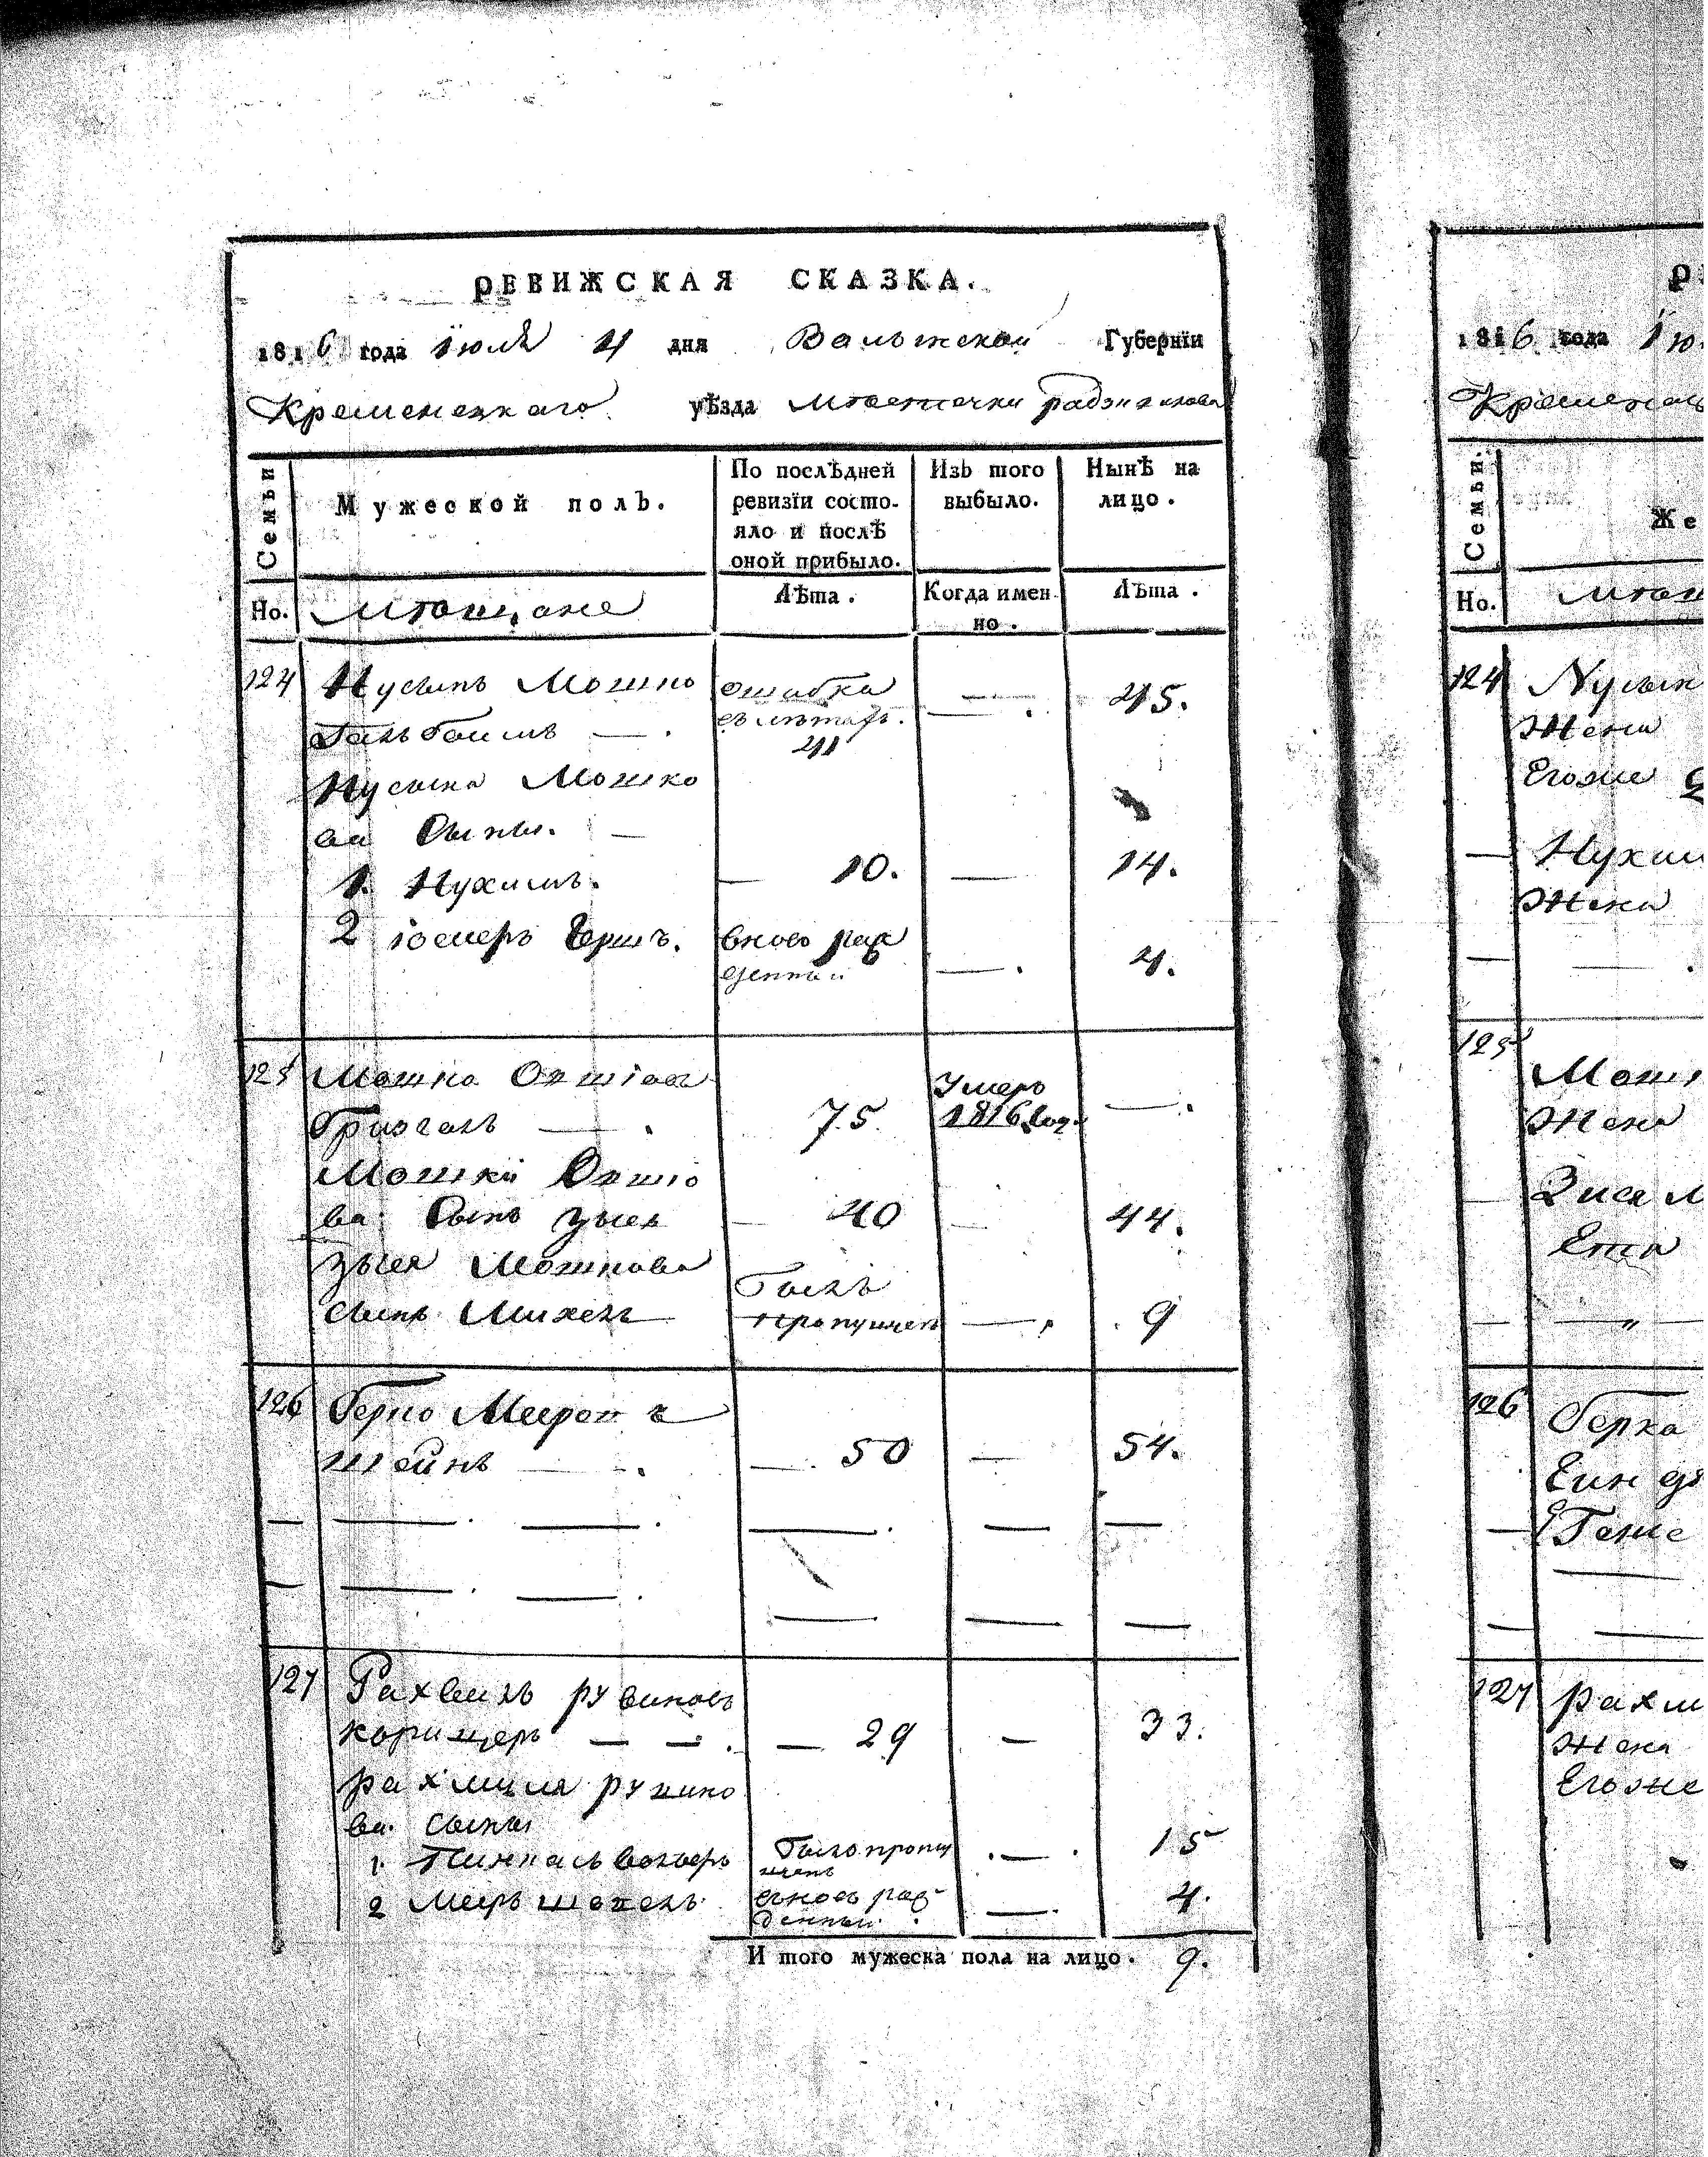 РЕВИЖСКАЯ СКАЗКА.
1816 года Июля 4 дня Валынской Губернїи
Кременецкаго уѣзда местечки радзивилова
Семьи
Мужеской полъ.
По послѣдней ревизїи состояло и послѣ оной прибыло.
Изъ того выбыло.
Нынѣ на лицо.
Но.
мещане
Лѣта.
Когда именно.
Лѣта.
124 Нусынъ Мошко ошибка — 45.
въ летахъ. — .
41
Нусина Мошко
ва Сыны. —
1. Нухимъ. — 10. — 14.
2 іосифъ Гершъ. вново раж — . 4.
денный
125 Мошко
75 Умеръ 1816 год. — .
Мошки
ва Сынъ зыся — 40 — 44.
зыся Мошкова Былъ
сынъ Михель пропущен — . 9
126 Берко Мееров
штейнъ — . — 50 — 54.
127 Рахмиль рувиновъ
— 29 — 33.
рахмиля рувино
ва сыны
1. Пинкась было пропу — . 15
щенъ
2 Меир вновь раж — . 4.
денный.
И того мужеска пола на лицо. 9.
1816 года Ию
Кременец
Семьи.
Же
Но. мещ
124 Нусын
Жена
Егоже
— Нухим
Жена
125 Мошк
Жена
Зися М
126 Берка
127 рахм
Жена
Егоже